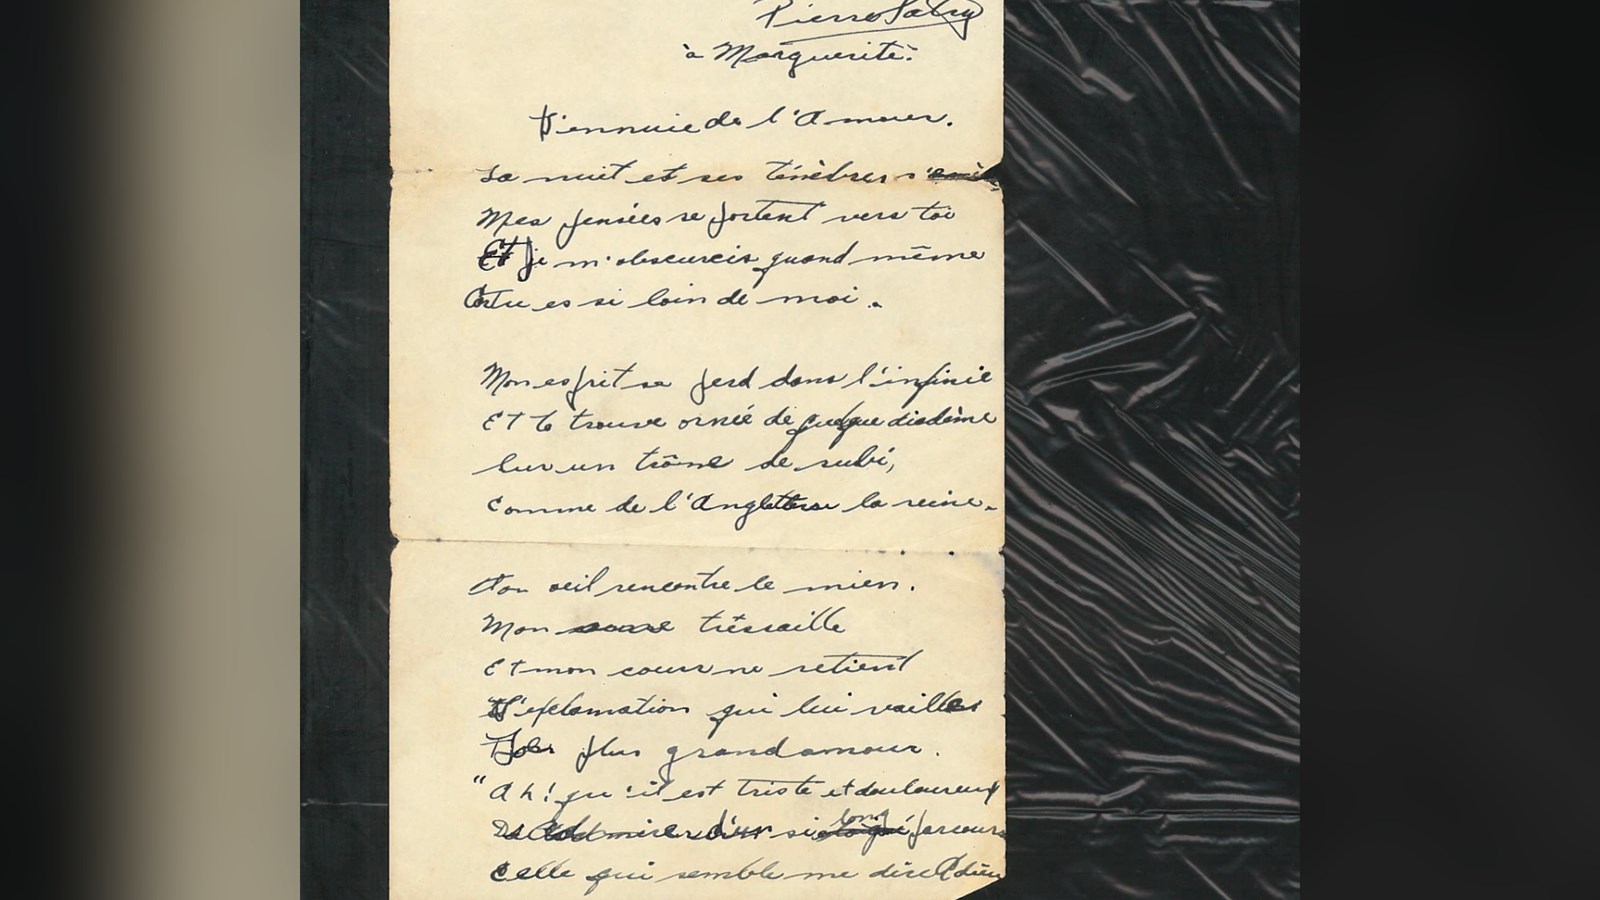 Pierre Patry
à Marguerite.
l'ennuie de l'Amour.
La nuit et ses ténèbres
Mes pensées se portent vers toi
Et je m'obscurcis quand même
Car tu es si loin de moi.
Mon esprit se perd dans l'infinie
Et te trouve ornée de quelque diadème
Sur un trône de rubi,
Comme de l'Angleterre la reine.
Ton oeil rencontre le mien.
Mon tréssaille
Et mon coeur ne retient
L'exclamation qui lui vaille
plus grand amour.
"Ah! qu'il est triste et douloureux
si long parcours
Celle qui semble me dire Adieu